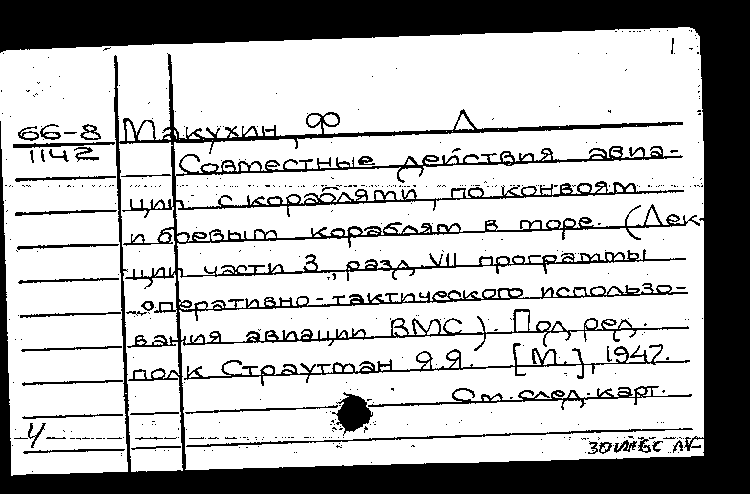 1
66-8 Макухин, Ф Л
1142 Совместные действия авиа-
ции с кораблями, по конвоям
и боевым кораблям в море. (Лек-
ции части 3, разд. VII программы
оперативно-тактического использо-
вания авиации ВМС). Под ред.
полк Страутман Я.Я. [М.], 1947.
См. след. карт.
У